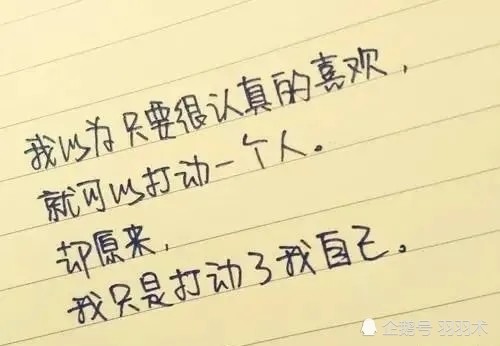 我以为只要很认真的喜欢，
就可以打动一个人。
却原来，
我只是打动了我自己。
企鹅号 羽羽术